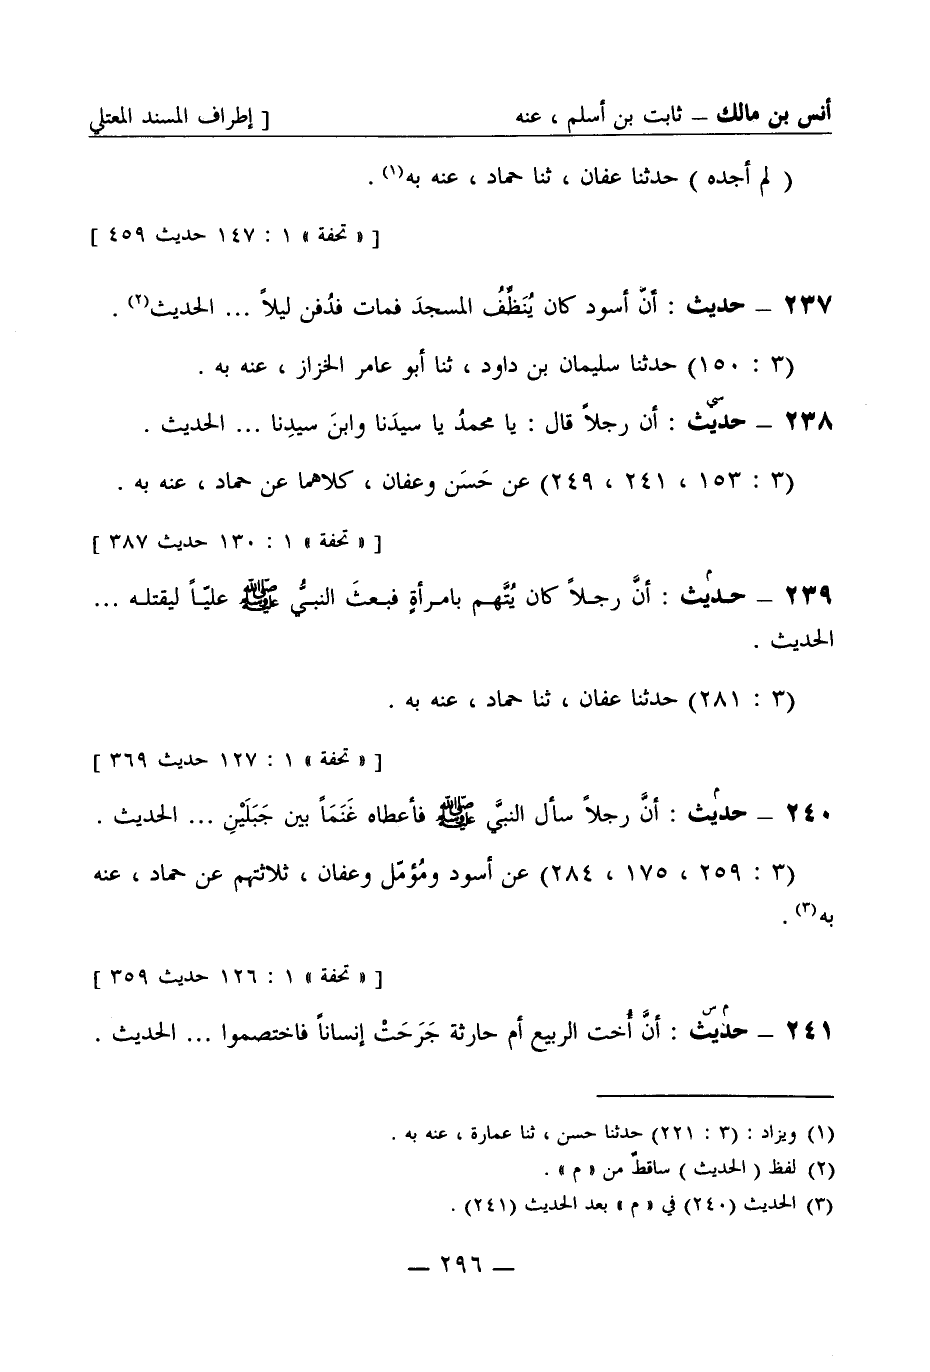 أنس بن مالك – ثابت بن أسلم ، عنه [ إطراف المسند المعتلي
( لم أجده ) حدثنا عفان ، ثنا حماد ، عنه به(١) .
[ « تحفة » ١ : ١٤٧ حديث ٤٥٩ ]
٢٣٧ – حديث : أنّ أسود كان يُنَظِّفُ المسجدَ فمات فدُفن ليلاً ... الحديث(٢) .
(٣ : ١٥٠) حدثنا سليمان بن داود ، ثنا أبو عامر الخزاز ، عنه به .
سي
٢٣٨ – حديث : أن رجلاً قال : يا محمدُ يا سيدَنا وابنَ سيدِنا ... الحديث .
(٣ : ١٥٣ ، ٢٤١ ، ٢٤٩) عن حَسَن وعفان ، كلاهما عن حماد ، عنه به .
[ « تحفة » ١ : ١٣٠ حديث ٣٨٧ ]
م
٢٣٩ – حديث : أنَّ رجلاً كان يُتَّهم بامرأةٍ فبعثَ النبيُّ ﷺ عليّاً ليقتله ...
الحديث .
(٣ : ٢٨١) حدثنا عفان ، ثنا حماد ، عنه به .
[ « تحفة » ١ : ١٢٧ حديث ٣٦٩ ]
م
٢٤٠ – حديث : أنَّ رجلاً سأل النبيَّ ﷺ فأعطاه غَنَمَاً بين جَبَلَيْنِ ... الحديث .
(٣ : ٢٥٩ ، ١٧٥ ، ٢٨٤) عن أسود ومُؤمّل وعفان ، ثلاثتهم عن حماد ، عنه
به(٣) .
[ « تحفة » ١ : ١٢٦ حديث ٣٥٩ ]
م س
٢٤١ – حديث : أنَّ أُخت الربيع أم حارثة جَرَحَتْ إنساناً فاختصموا ... الحديث .
(١) ويزاد : (٣ : ٢٢١) حدثنا حسن ، ثنا عمارة ، عنه به .
(٢) لفظ ( الحديث ) ساقطٌ من « م » .
(٣) الحديث (٢٤٠) في « م » بعد الحديث (٢٤١) .
– ٢٩٦ –